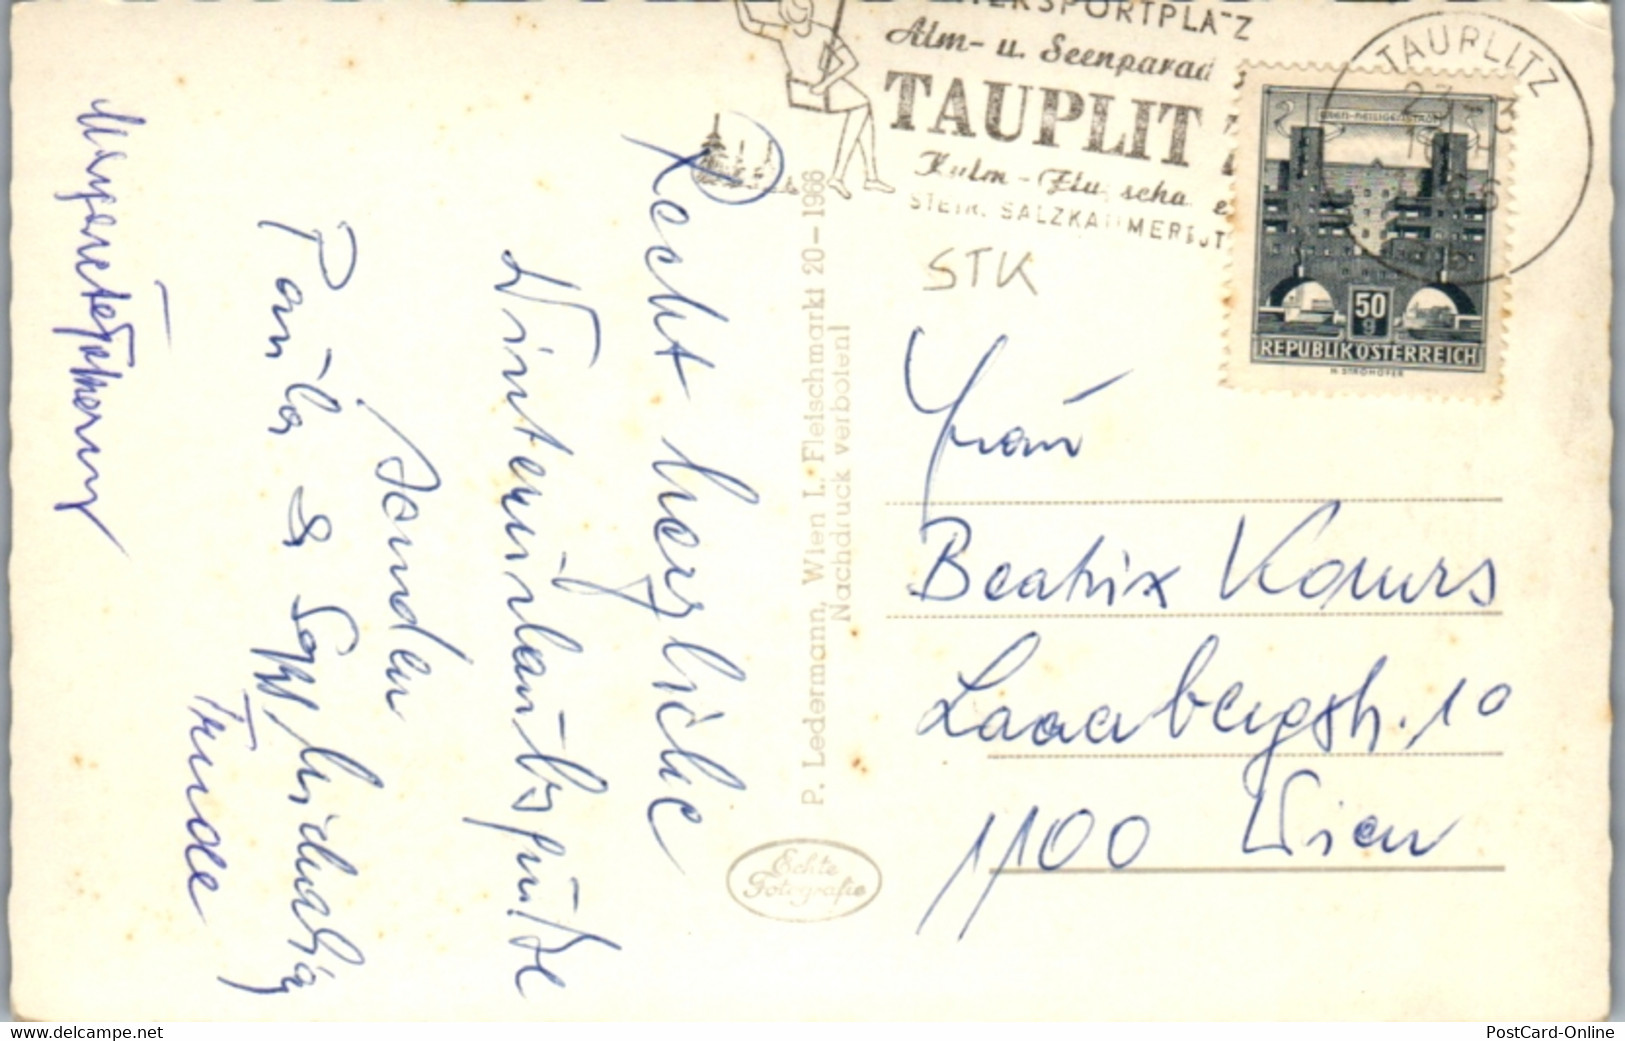 WINTERSPORTPLATZ
Alm- u. Seenparad
TAUPLIT
Kulm-Flu scha e
STEIR. SALZKAMMERGUT
TAUPLITZ
23
WIEN-HEILIGENSTADT
50
g
REPUBLIK OSTERREICH
H. STROHOFER
STK
Recht herzliche
Winterurlaubsgrüße
senden
Paula &
Trude
Margarete
P. Ledermann, Wien I., Fleischmarkt 20-1966
Nachdruck verboten!
Echte
Fotografie
Frau
Beatrix Kours
Laaerbergstr. 10
1100 Wien
www.delcampe.net
marc66
PostCard-Online